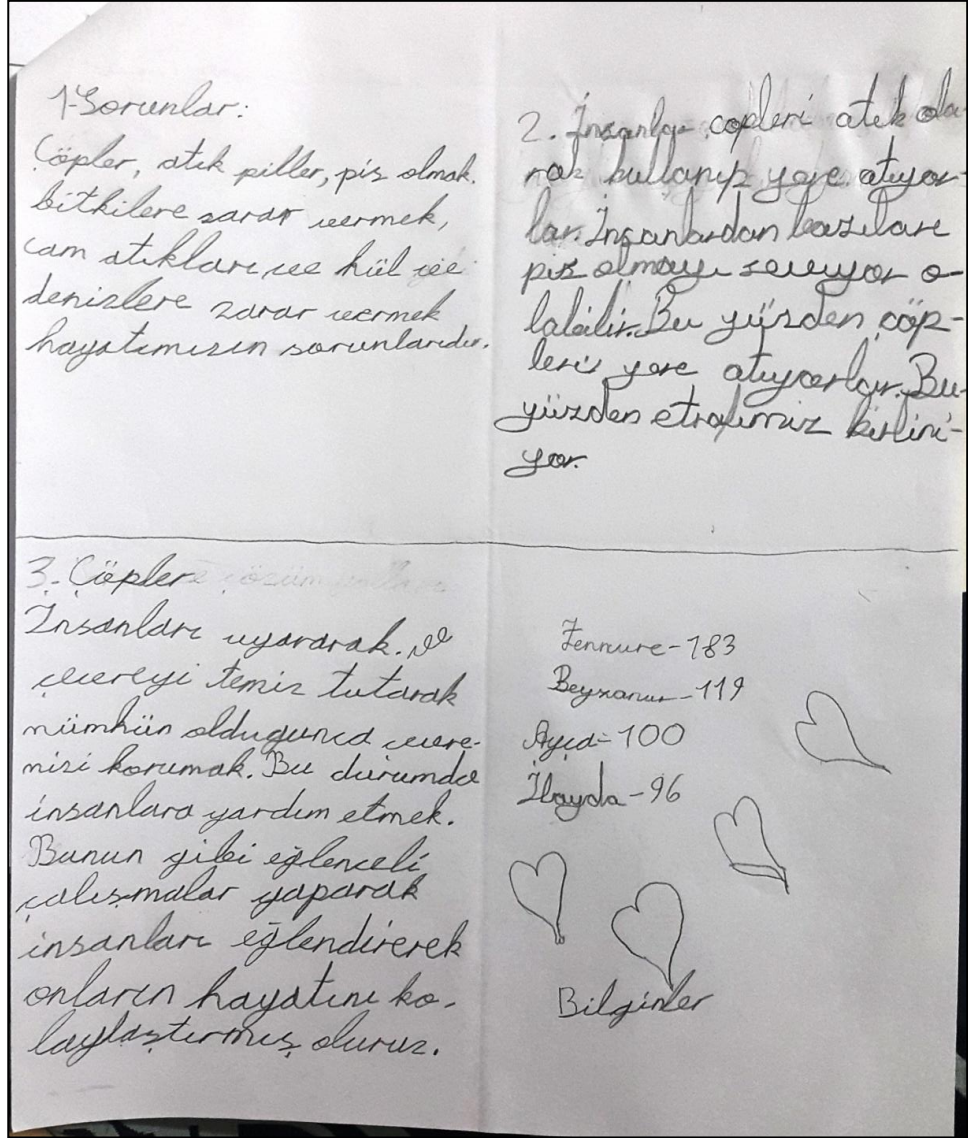 1-Sorunlar:
Çöpler, atık piller, pis olmak.
bitkilere zarar vermek,
cam atıkları, ve kül ve
denizlere zarar vermek
hayatımızın sorunlarıdır.
2. İnsanlar çopleri atık ola-
rak kullanıp yere atıyor-
lar. İnsanlardan bazıları
pis olmayı seviyor o-
labilir. Bu yüzden çöp-
leri yere atıyorlar. Bu
yüzden etrafımız kirlini-
yor.
3. Çöplere çözüm yolları
İnsanları uyararak. ve
çevreyi temiz tutarak
mümkün oldugunca çevre-
mizi korumak. Bu durumda
insanlara yardım etmek.
Bunun gibi eğlenceli
çalışmalar yaparak
insanları eğlendirerek
onların hayatını ko-
laylaştırmış oluruz.
Zennure-183
Beyzanur-119
Ayça-100
İlayda-96
Bilginler